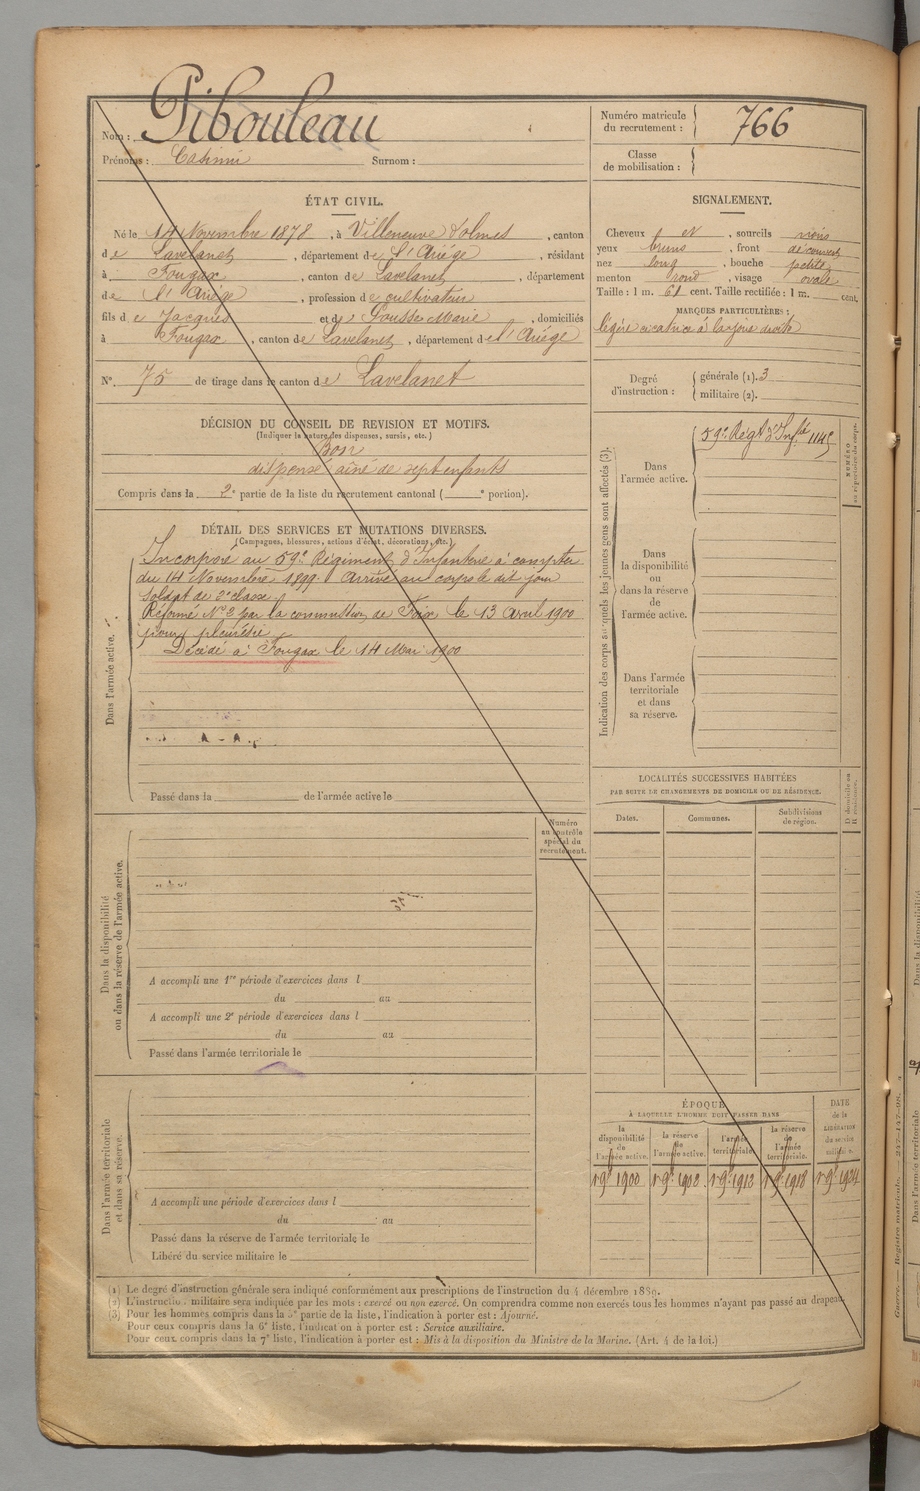 Nom : Pibouleau
Prénoms : Casimir Surnom :
Numéro matricule du recrutement : 766
Classe de mobilisation :
ÉTAT CIVIL.
Né le 14 Novembre 1878, à Villeneuve d'olmes, canton
de Lavelanet, département de l'Ariége, résidant
à Fougax, canton de Lavelanet, département
de l'Ariége, profession de cultivateur
fils de Jacques et de Sousse Marie, domiciliés
à Fougax, canton de Lavelanet, département de l'Ariége
N° 75 de tirage dans le canton de Lavelanet
SIGNALEMENT.
Cheveux et, sourcils noirs
yeux bruns, front découvert
nez long, bouche petite
menton rond, visage ovale
Taille : 1 m. 61 cent. Taille rectifiée : 1 m. cent.
MARQUES PARTICULIÈRES :
légère cicatrice à la joue droite
Degré d'instruction : générale (1). 3
militaire (2).
DÉCISION DU CONSEIL DE REVISION ET MOTIFS.
(Indiquer la nature des dispenses, sursis, etc.)
Bon
dispensé aîné de sept enfants
Compris dans la 2e partie de la liste du recrutement cantonal ( e portion).
DÉTAIL DES SERVICES ET MUTATIONS DIVERSES.
(Campagnes, blessures, actions d'éclat, décorations, etc.)
Dans l'armée active.
Incorporé au 59e Régiment d'Infanterie à compter
du 14 Novembre 1899. Arrivé au corps le dit jour
Soldat de 2e classe
Réformé N°2 par la commission de Foix le 13 Avril 1900
pour pleurésie
Décédé à Fougax le 14 Mai 1900
Passé dans la de l'armée active le
Indication des corps auxquels les jeunes gens sont affectés (3).
Dans l'armée active.
59e Régt d'Infie
NUMÉRO au répertoire du corps.
Dans la disponibilité ou dans la réserve de l'armée active.
Dans l'armée territoriale et dans sa réserve.
LOCALITÉS SUCCESSIVES HABITÉES
PAR SUITE DE CHANGEMENTS DE DOMICILE OU DE RÉSIDENCE.
Dates. Communes. Subdivisions de région.
D. domicile ou R. résidence.
Numéro au contrôle spécial du recrutement.
Dans la disponibilité ou dans la réserve de l'armée active.
A accompli une 1re période d'exercices dans l
du au
A accompli une 2e période d'exercices dans l
du au
Passé dans l'armée territoriale le
Dans l'armée territoriale et dans sa réserve.
A accompli une période d'exercices dans l
du au
Passé dans la réserve de l'armée territoriale le
Libéré du service militaire le
ÉPOQUE
À LAQUELLE L'HOMME DOIT PASSER DANS
la disponibilité de l'armée active.
la réserve de l'armée active.
l'armée territoriale.
la réserve de l'armée territoriale.
DATE de la LIBÉRATION du service militaire.
1900 1902 1912 1918 1924
(1) Le degré d'instruction générale sera indiqué conformément aux prescriptions de l'instruction du 4 décembre 1889.
(2) L'instruction militaire sera indiquée par les mots : exercé ou non exercé. On comprendra comme non exercés tous les hommes n'ayant pas passé au drapeau.
(3) Pour les hommes compris dans la 5e partie de la liste, l'indication à porter est : Ajourné.
Pour ceux compris dans la 6e liste, l'indication à porter est : Service auxiliaire.
Pour ceux compris dans la 7e liste, l'indication à porter est : Mis à la disposition du Ministre de la Marine. (Art. 4 de la loi.)